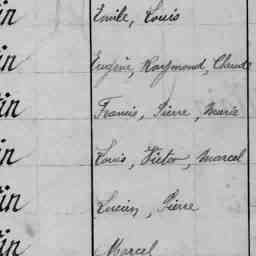 in Emile, Louis
in Eugène, Raymond, Claude
in Francis, Pierre, Marie
in Louis, Victor, Marcel
in Lucien, Pierre
in Marcel